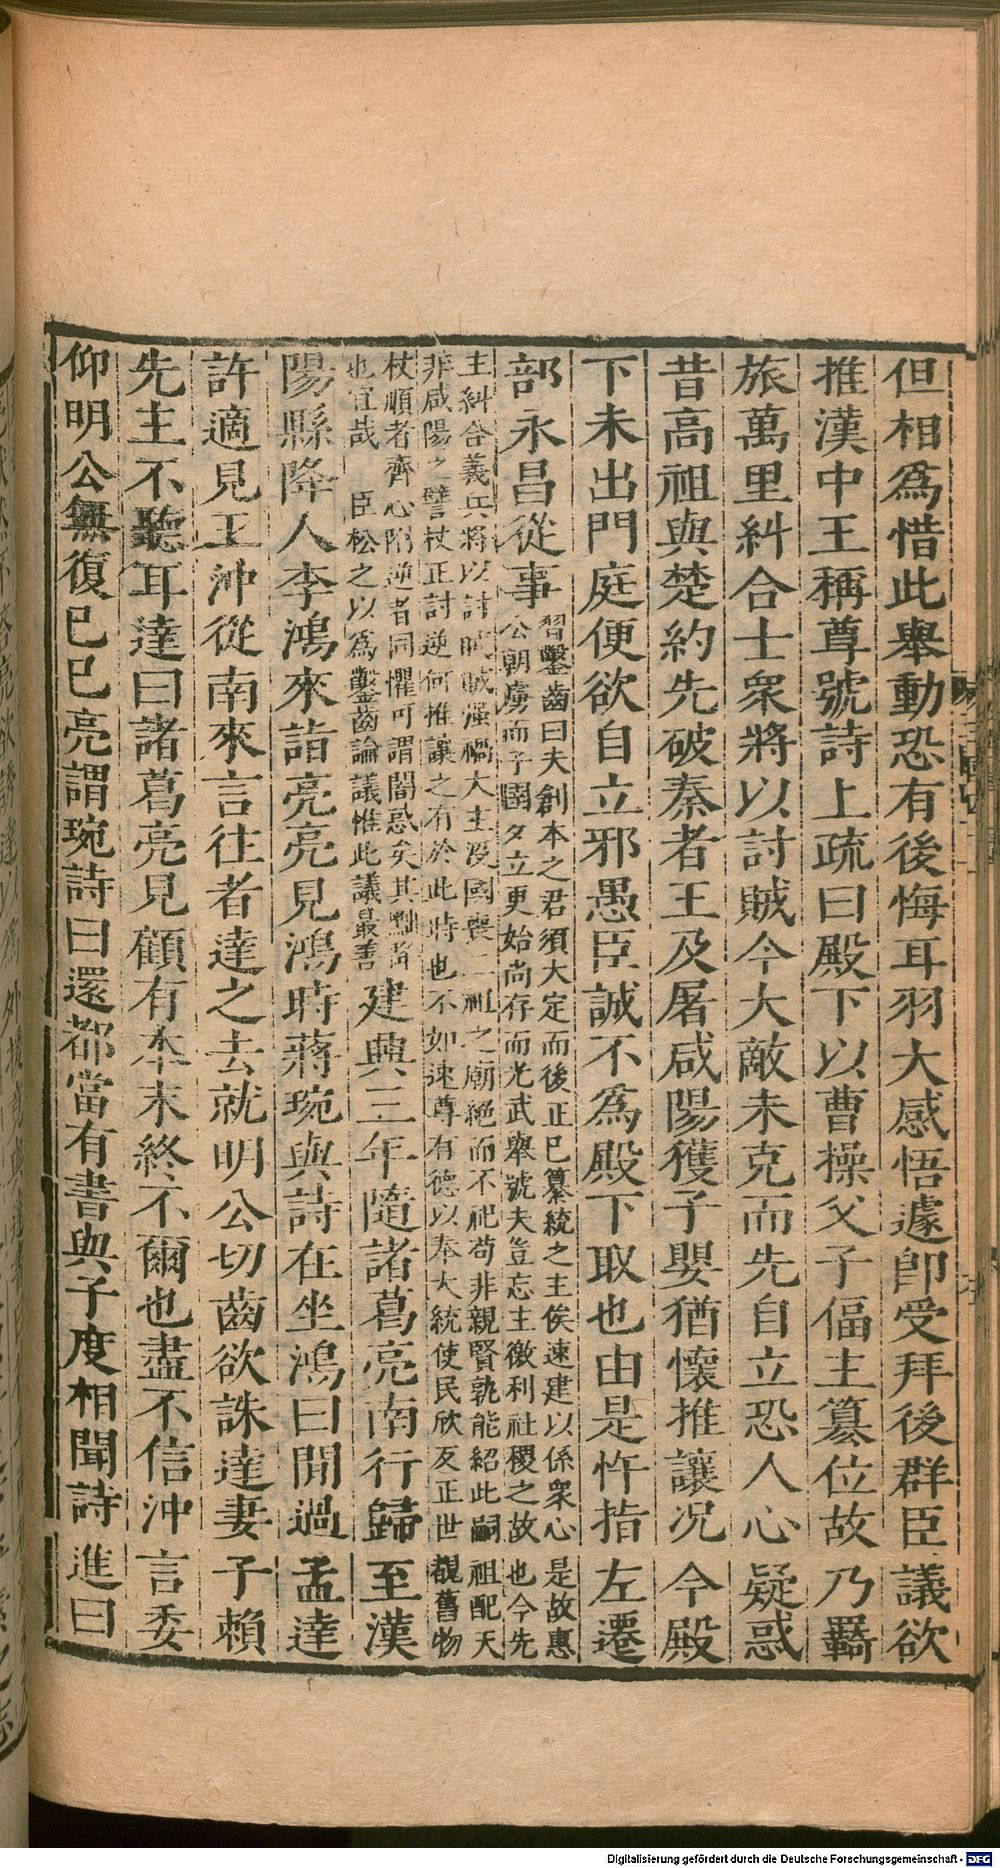 但相爲惜此舉動恐有後悔耳羽大感悟遽即受拜後群臣議欲
推漢中王稱尊號詩上疏曰殿下以曹操父子偪主篡位故乃羇
旅萬里糾合士衆將以討賊今大敵未克而先自立恐人心疑惑
昔高祖與楚約先破秦者王及屠咸陽獲子嬰猶懷推讓况今殿
下未出門庭便欲自立邪愚臣誠不爲殿下取也由是忤指左遷
部永昌從事
習鑿齒曰夫創本之君須大定而後正已纂統之主俟速建以係衆心是故惠
公朝虜而子圉夕立更始尚存而光武舉號夫豈忘主徼利社稷之故也今先
主糾合義兵將以討賊賊彊禍大主没國喪二祖之廟絶而不祀苟非親賢孰能紹此嗣祖配天
非咸陽之譬杖正討逆何推讓之有於此時也不如速尊有德以奉大統使民欣反正世覩舊物
杖順者齊心附逆者同懼可謂闇惑矣其黜降
也宜哉 臣松之以爲鑿齒論議惟此議最善
建興三年隨諸葛亮南行歸至漢
陽縣降人李鴻來詣亮亮見鴻時蔣琬與詩在坐鴻曰閒過孟達
許適見王沖從南來言往者達之去就明公切齒欲誅達妻子賴
先主不聽耳達曰諸葛亮見顧有本末終不爾也盡不信沖言委
仰明公無復已已亮謂琬詩曰還都當有書與子度相聞詩進曰
Digitalisierung gefördert durch die Deutsche Forschungsgemeinschaft - DFG